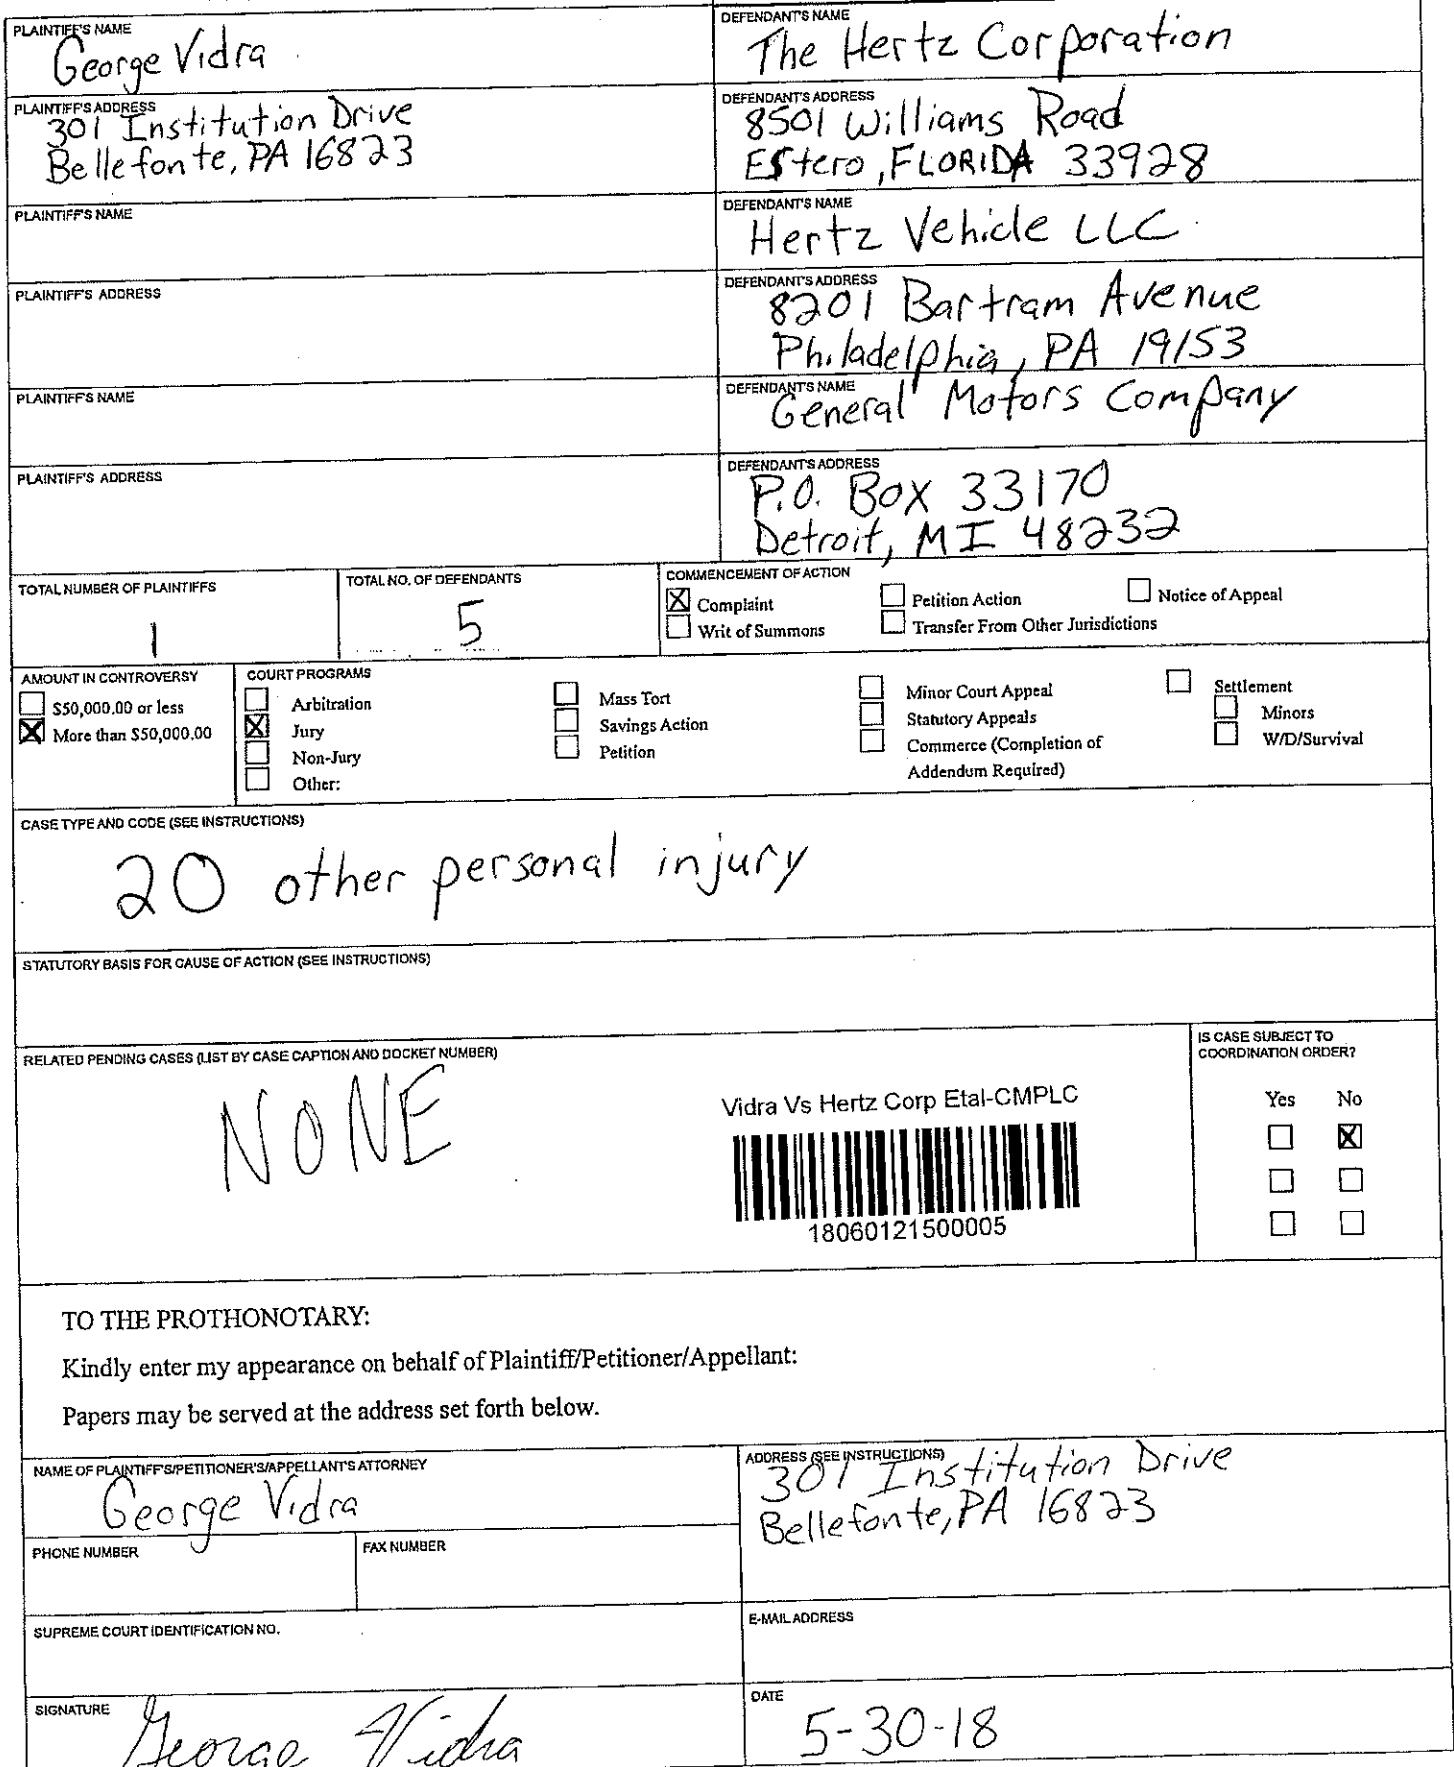 PLAINTIFF'S NAME
George Vidra
DEFENDANT'S NAME
The Hertz Corporation
PLAINTIFF'S ADDRESS
301 Institution Drive
Bellefonte, PA 16823
DEFENDANT'S ADDRESS
8501 Williams Road
Estero, FLORIDA 33928
PLAINTIFF'S NAME
DEFENDANT'S NAME
Hertz Vehicle LLC
PLAINTIFF'S ADDRESS
DEFENDANT'S ADDRESS
8201 Bartram Avenue
Philadelphia, PA 19153
PLAINTIFF'S NAME
DEFENDANT'S NAME
General Motors Company
PLAINTIFF'S ADDRESS
DEFENDANT'S ADDRESS
P.O. Box 33170
Detroit, MI 48232
TOTAL NUMBER OF PLAINTIFFS
1
TOTAL NO. OF DEFENDANTS
5
COMMENCEMENT OF ACTION
X Complaint
Petition Action
Notice of Appeal
Writ of Summons
Transfer From Other Jurisdictions
AMOUNT IN CONTROVERSY
$50,000.00 or less
X More than $50,000.00
COURT PROGRAMS
Arbitration
X Jury
Non-Jury
Other:
Mass Tort
Savings Action
Petition
Minor Court Appeal
Statutory Appeals
Commerce (Completion of
Addendum Required)
Settlement
Minors
W/D/Survival
CASE TYPE AND CODE (SEE INSTRUCTIONS)
20 other personal injury
STATUTORY BASIS FOR CAUSE OF ACTION (SEE INSTRUCTIONS)
RELATED PENDING CASES (LIST BY CASE CAPTION AND DOCKET NUMBER)
NONE
Vidra Vs Hertz Corp Etal-CMPLC
18060121500005
IS CASE SUBJECT TO
COORDINATION ORDER?
Yes No
X
TO THE PROTHONOTARY:
Kindly enter my appearance on behalf of Plaintiff/Petitioner/Appellant:
Papers may be served at the address set forth below.
NAME OF PLAINTIFF'S/PETITIONER'S/APPELLANT'S ATTORNEY
George Vidra
ADDRESS (SEE INSTRUCTIONS)
301 Institution Drive
Bellefonte, PA 16823
PHONE NUMBER
FAX NUMBER
SUPREME COURT IDENTIFICATION NO.
E-MAIL ADDRESS
SIGNATURE
George Vidra
DATE
5-30-18